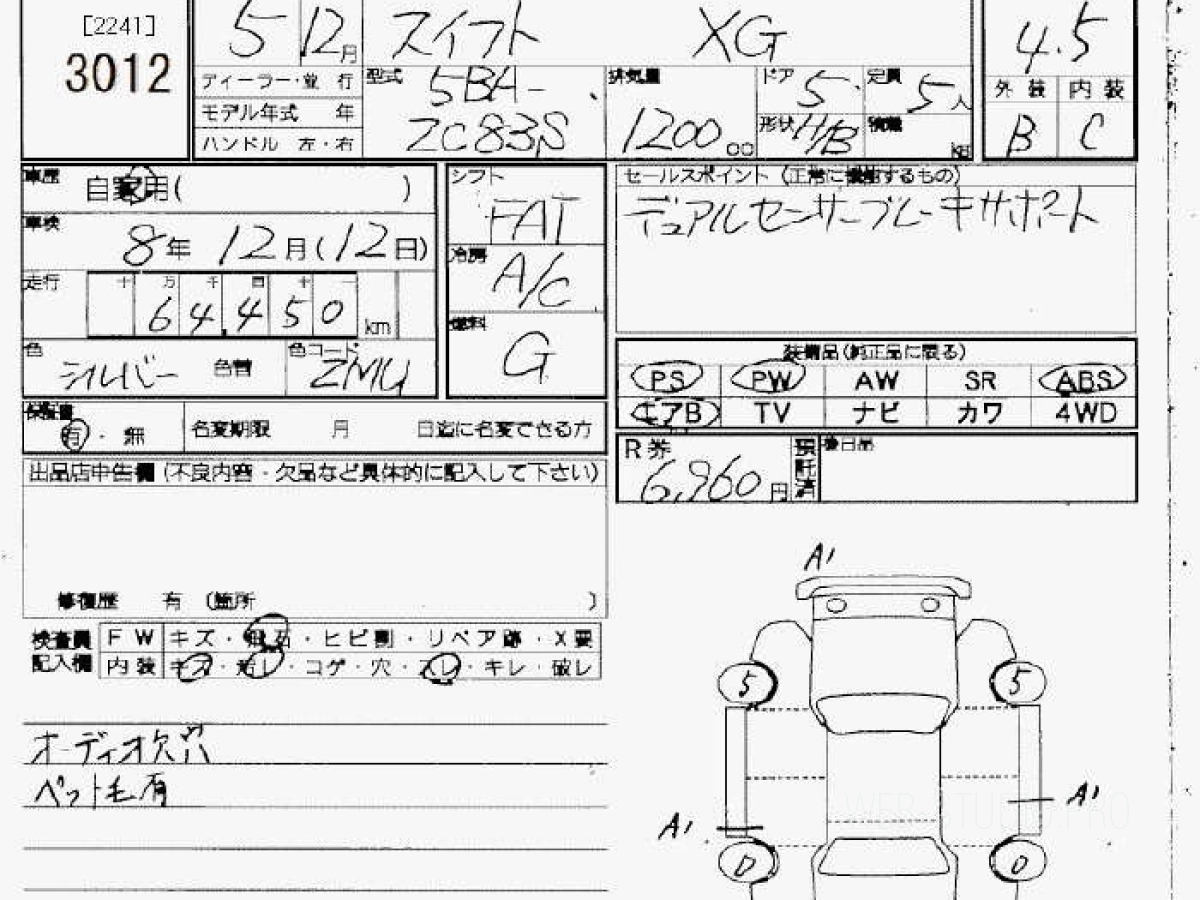 [2241]
3012
5 12月 スイフト XG 4.5
ディーラー・並 行 型式 5BA- 排気量 ドア 5 定員 5人 外 装 内 装
モデル年式 年
ハンドル 左・右 ZC83S 1200cc 形状 H/B 積載 kg B C
車歴 自家用( ) シフト FAT
セールスポイント (正常に機能するもの)
デュアルセンサーブレーキサポート
車検 8年 12月(12日) 冷房 A/C
走行 十 万 千 百 十 一
64,450 km 燃料 G
色 シルバー 色替 色コード ZMU
装備品(純正品に限る)
PS PW AW SR ABS
エアB TV ナビ カワ 4WD
保証書 有・無 名変期限 月 日迄に名変できる方
R券 6,960円 預託済 後日品
出品店申告欄(不良内容・欠品など具体的に記入して下さい)
修復歴 有 (箇所 )
検査員記入欄
F W キズ・飛石・ヒビ割・リペア跡・X要
内 装 キズ・汚レ・コゲ・穴・スレ・キレ・破レ
オーディオ欠穴
ペット毛有
A1
5 5
A1
A1
0 0
WEB STUDIO PRO